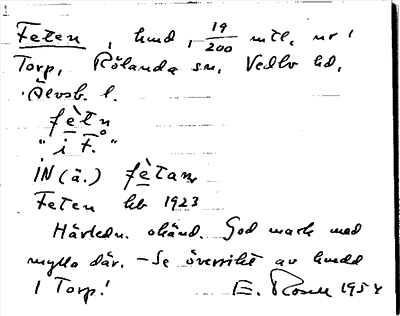 Feten, hmd, 19/200 mtl. nr 1
Torp, Rölanda sn, Vedbo hd,
Älvsb. l.
fètn
"i F."
IN (ä.) fètan
Feten hb 1923
Härledn. okänd. God mark med
mylla där. – Se översikt av hmdd
i Torp!
E. Rosell 1954